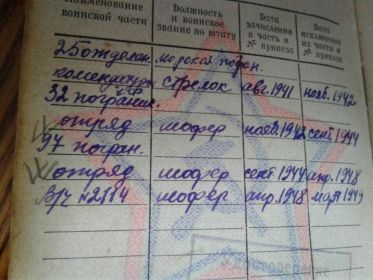 Наименование воинской части Должность и воинское звание по штату Дата зачисления в часть и № приказа Дата исключения из части и № приказа
25 отделн. морской погран.
комендатура стрелок авг. 1941 нояб. 1942
32 погранич.
отряд шофер нояб. 1942 сент 1944
97 погран.
отряд шофер сент 1944 апр. 1948
В/ч № 2114 шофер апр. 1948 март 1949